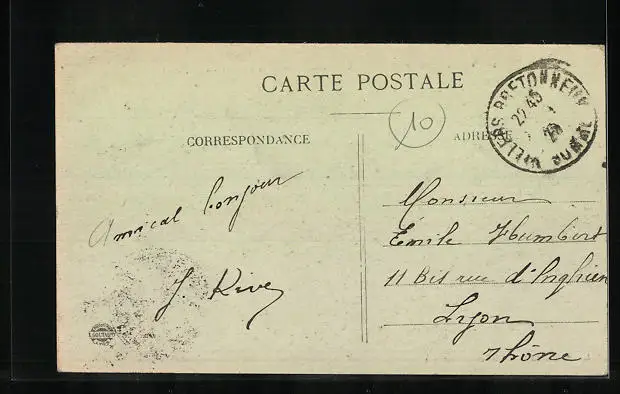 CARTE POSTALE
CORRESPONDANCE
ADRESSE
10
VILLERS-BRETONNEUX SOMME
22 45
20
Amical bonjour
Monsieur
Émile Humbert
11 Bis rue d'Enghien
Lyon
Rhône